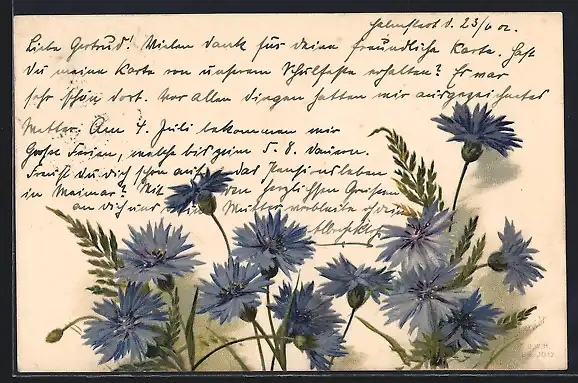 Helmstedt d. 23/6 02.
Liebe Gertrud! Vielen Dank für deine freundliche Karte. Hast
Du meine Karte von unserem Schulfeste erhalten? Es war
sehr schön dort. Vor allen Dingen hatten wir ausgezeichnetes
Wetter. Am 4. Juli bekommen wir
Große Ferien, welche bis zum 5. 8. dauern.
Freust Du dich schon auf das Pensionsleben
in Weimar? Mit den herzlichsten Grüßen
an dich und deine Mutter verbleibe ich